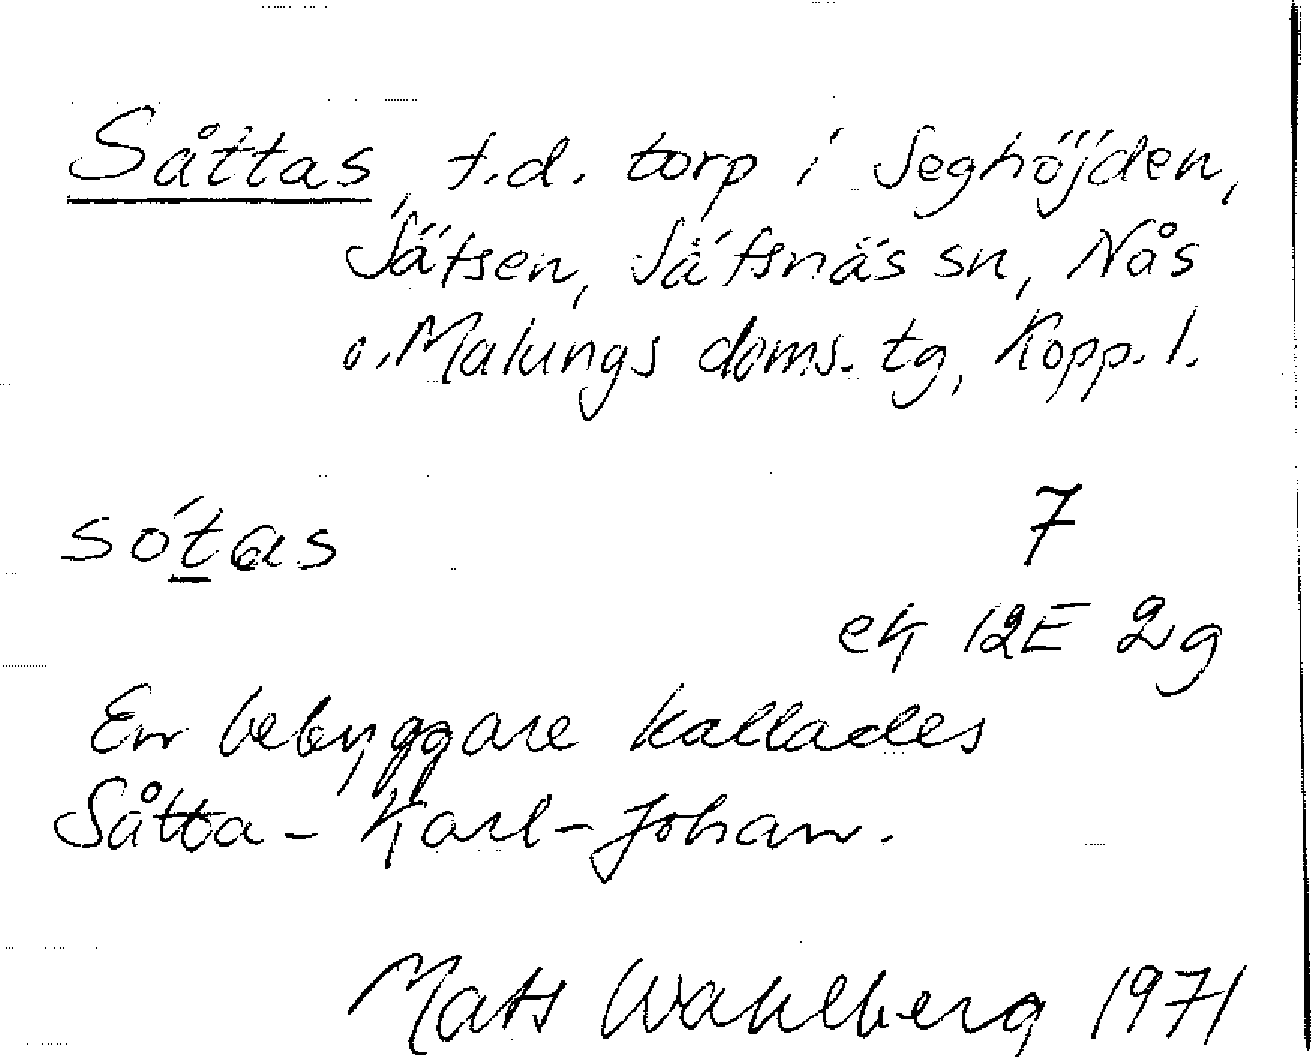 Såttas, f.d. torp i Seghöjden,
Jätsen, Säfsnäs sn, Nås
o. Malungs doms. tg, Kopp. l.
sótas 7
ek 12E 2g
En bebyggare kallades
Såtta-Karl-Johan.
Mats Wahlberg 1971